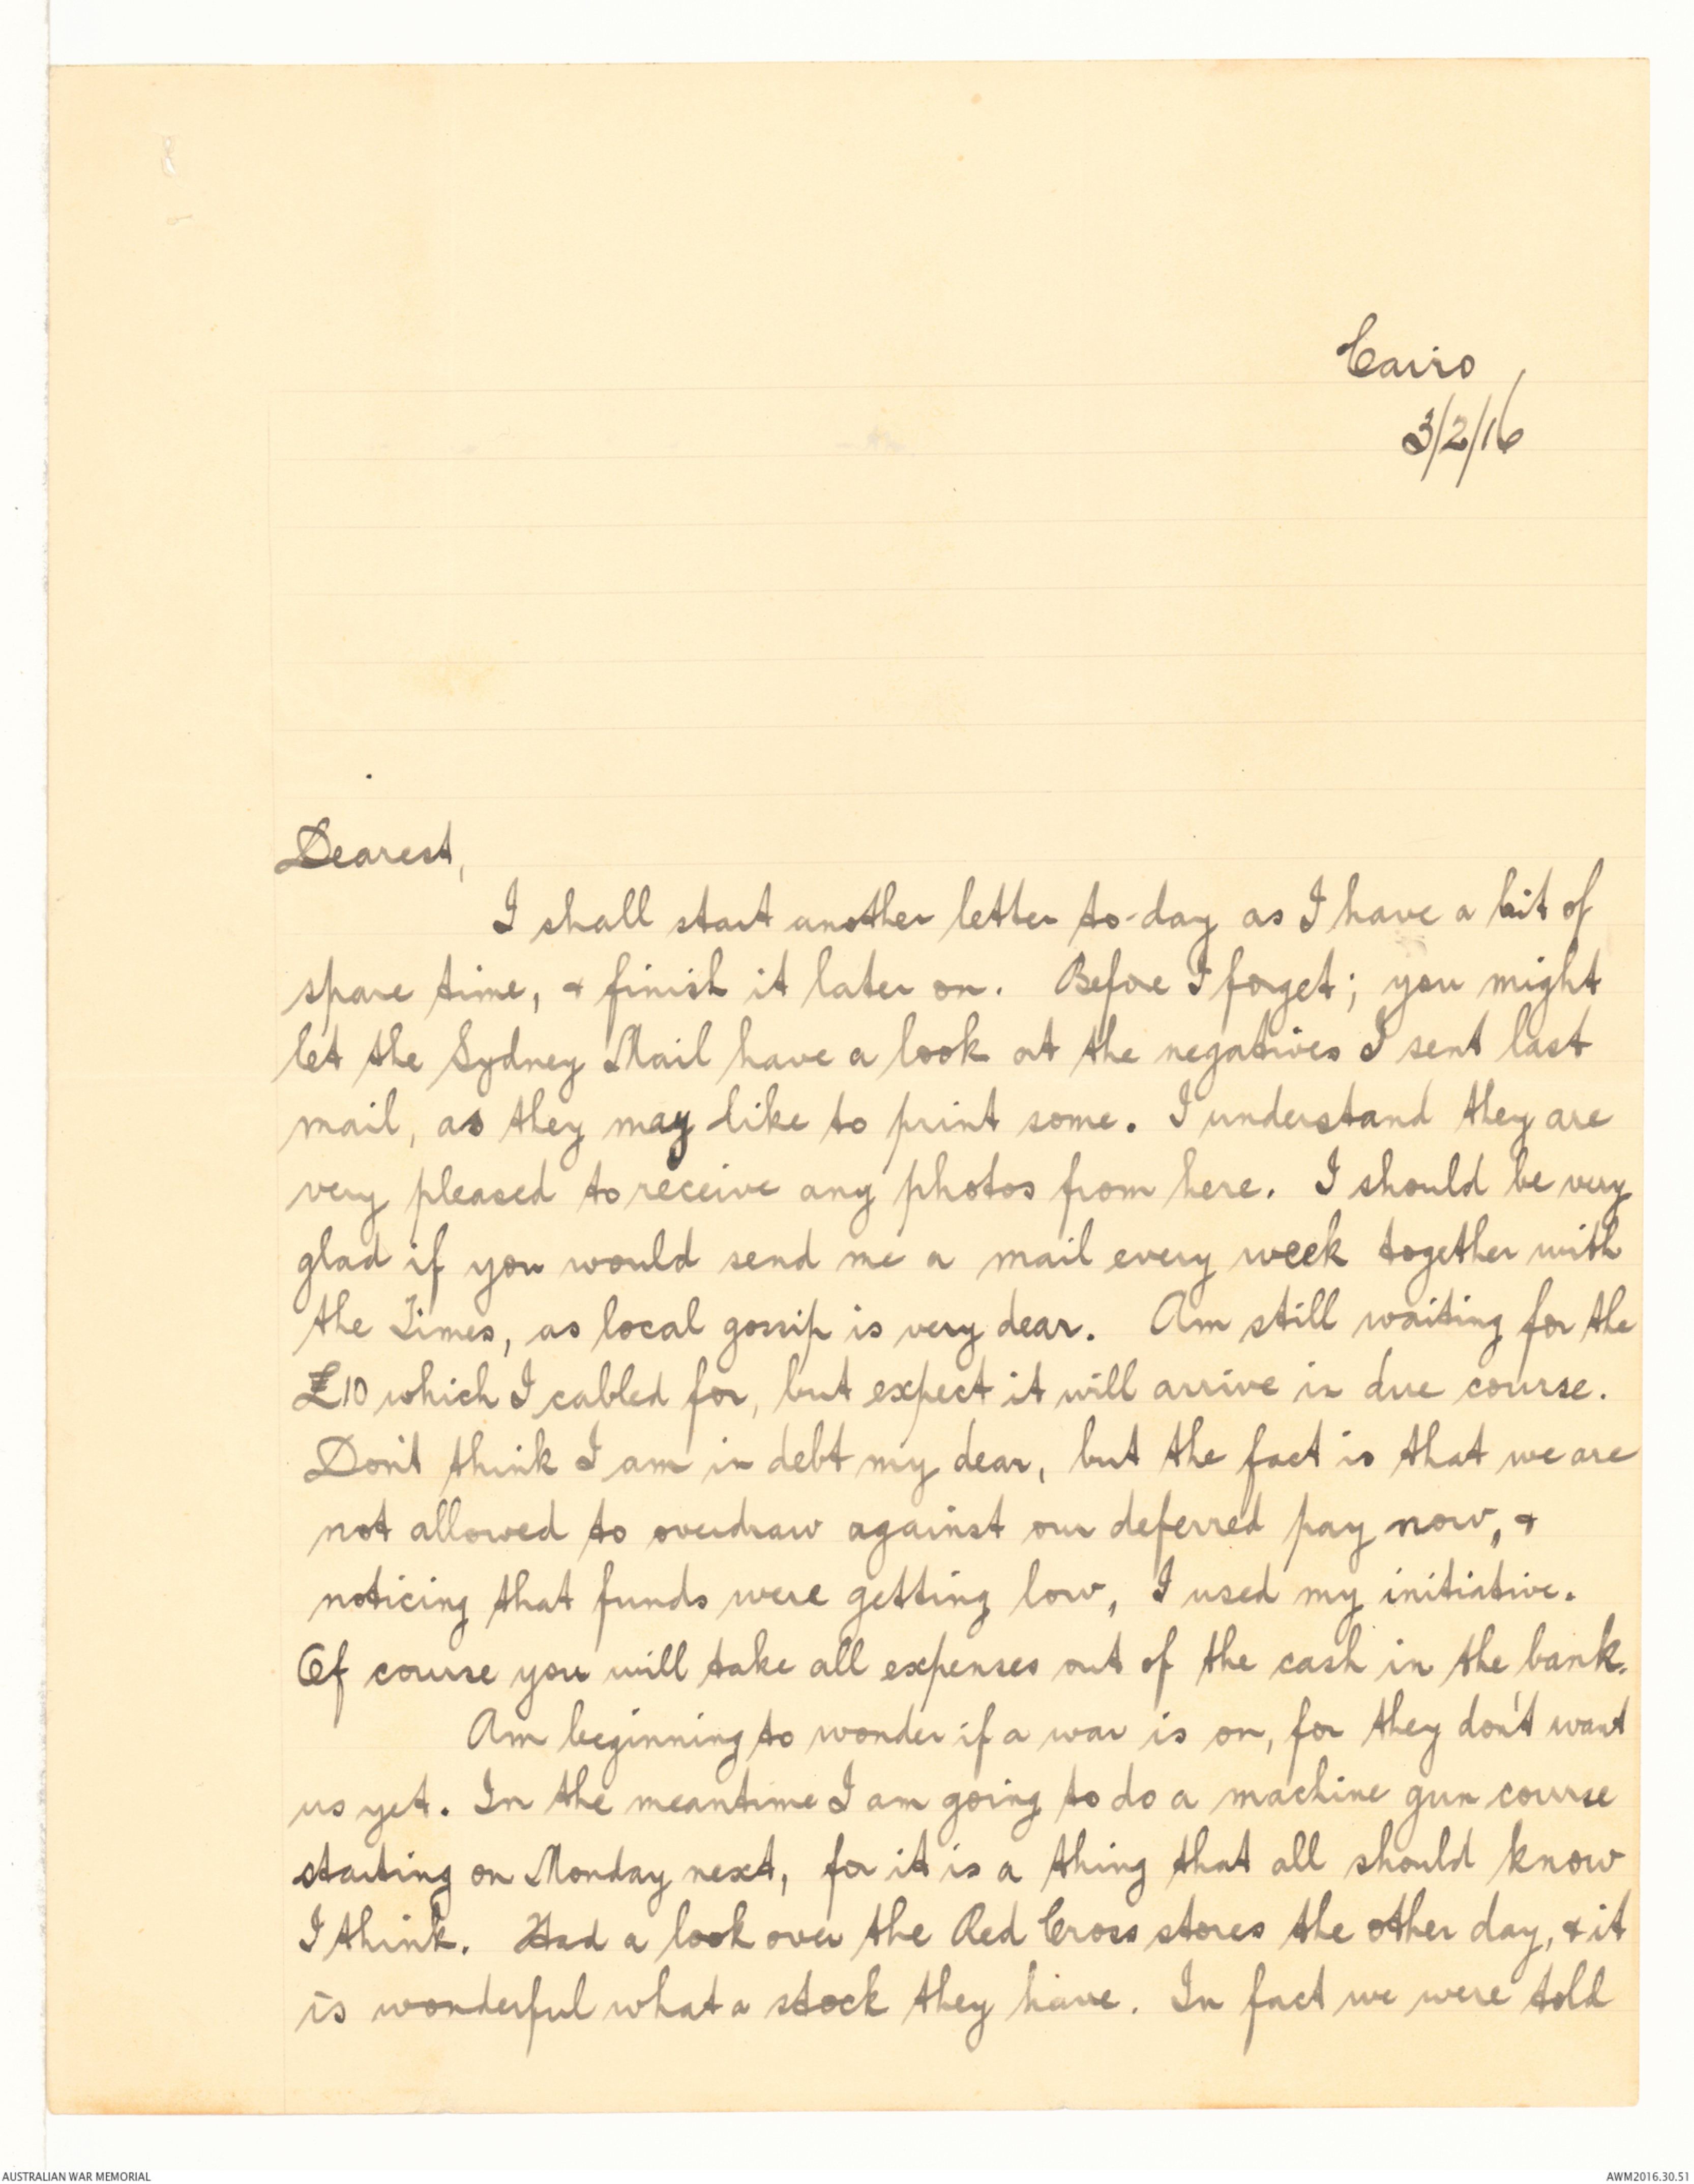 Cairo
3/2/16
Dearest,
I shall start another letter to-day as I have a bit of
spare time, & finish it later on. Before I forget; you might
let the Sydney Mail have a look at the negatives I sent last
mail, as they may like to print some. I understand they are
very pleased to receive any photos from here. I should be very
glad if you would send me a mail every week together with
the Times, as local gossip is very dear. Am still waiting for the
£10 which I cabled for, but expect it will arrive in due course.
Don't think I am in debt my dear, but the fact is that we are
not allowed to overdraw against our deferred pay now, &
noticing that funds were getting low, I used my initiative.
Of course you will take all expenses out of the cash in the bank.
Am beginning to wonder if a war is on, for they don't want
us yet. In the meantime I am going to do a machine gun course
starting on Monday next, for it is a thing that all should know
I think. Had a look over the Red Cross stores the other day, & it
is wonderful what a stock they have. In fact we were told
AUSTRALIAN WAR MEMORIAL
AWM2016.30.51